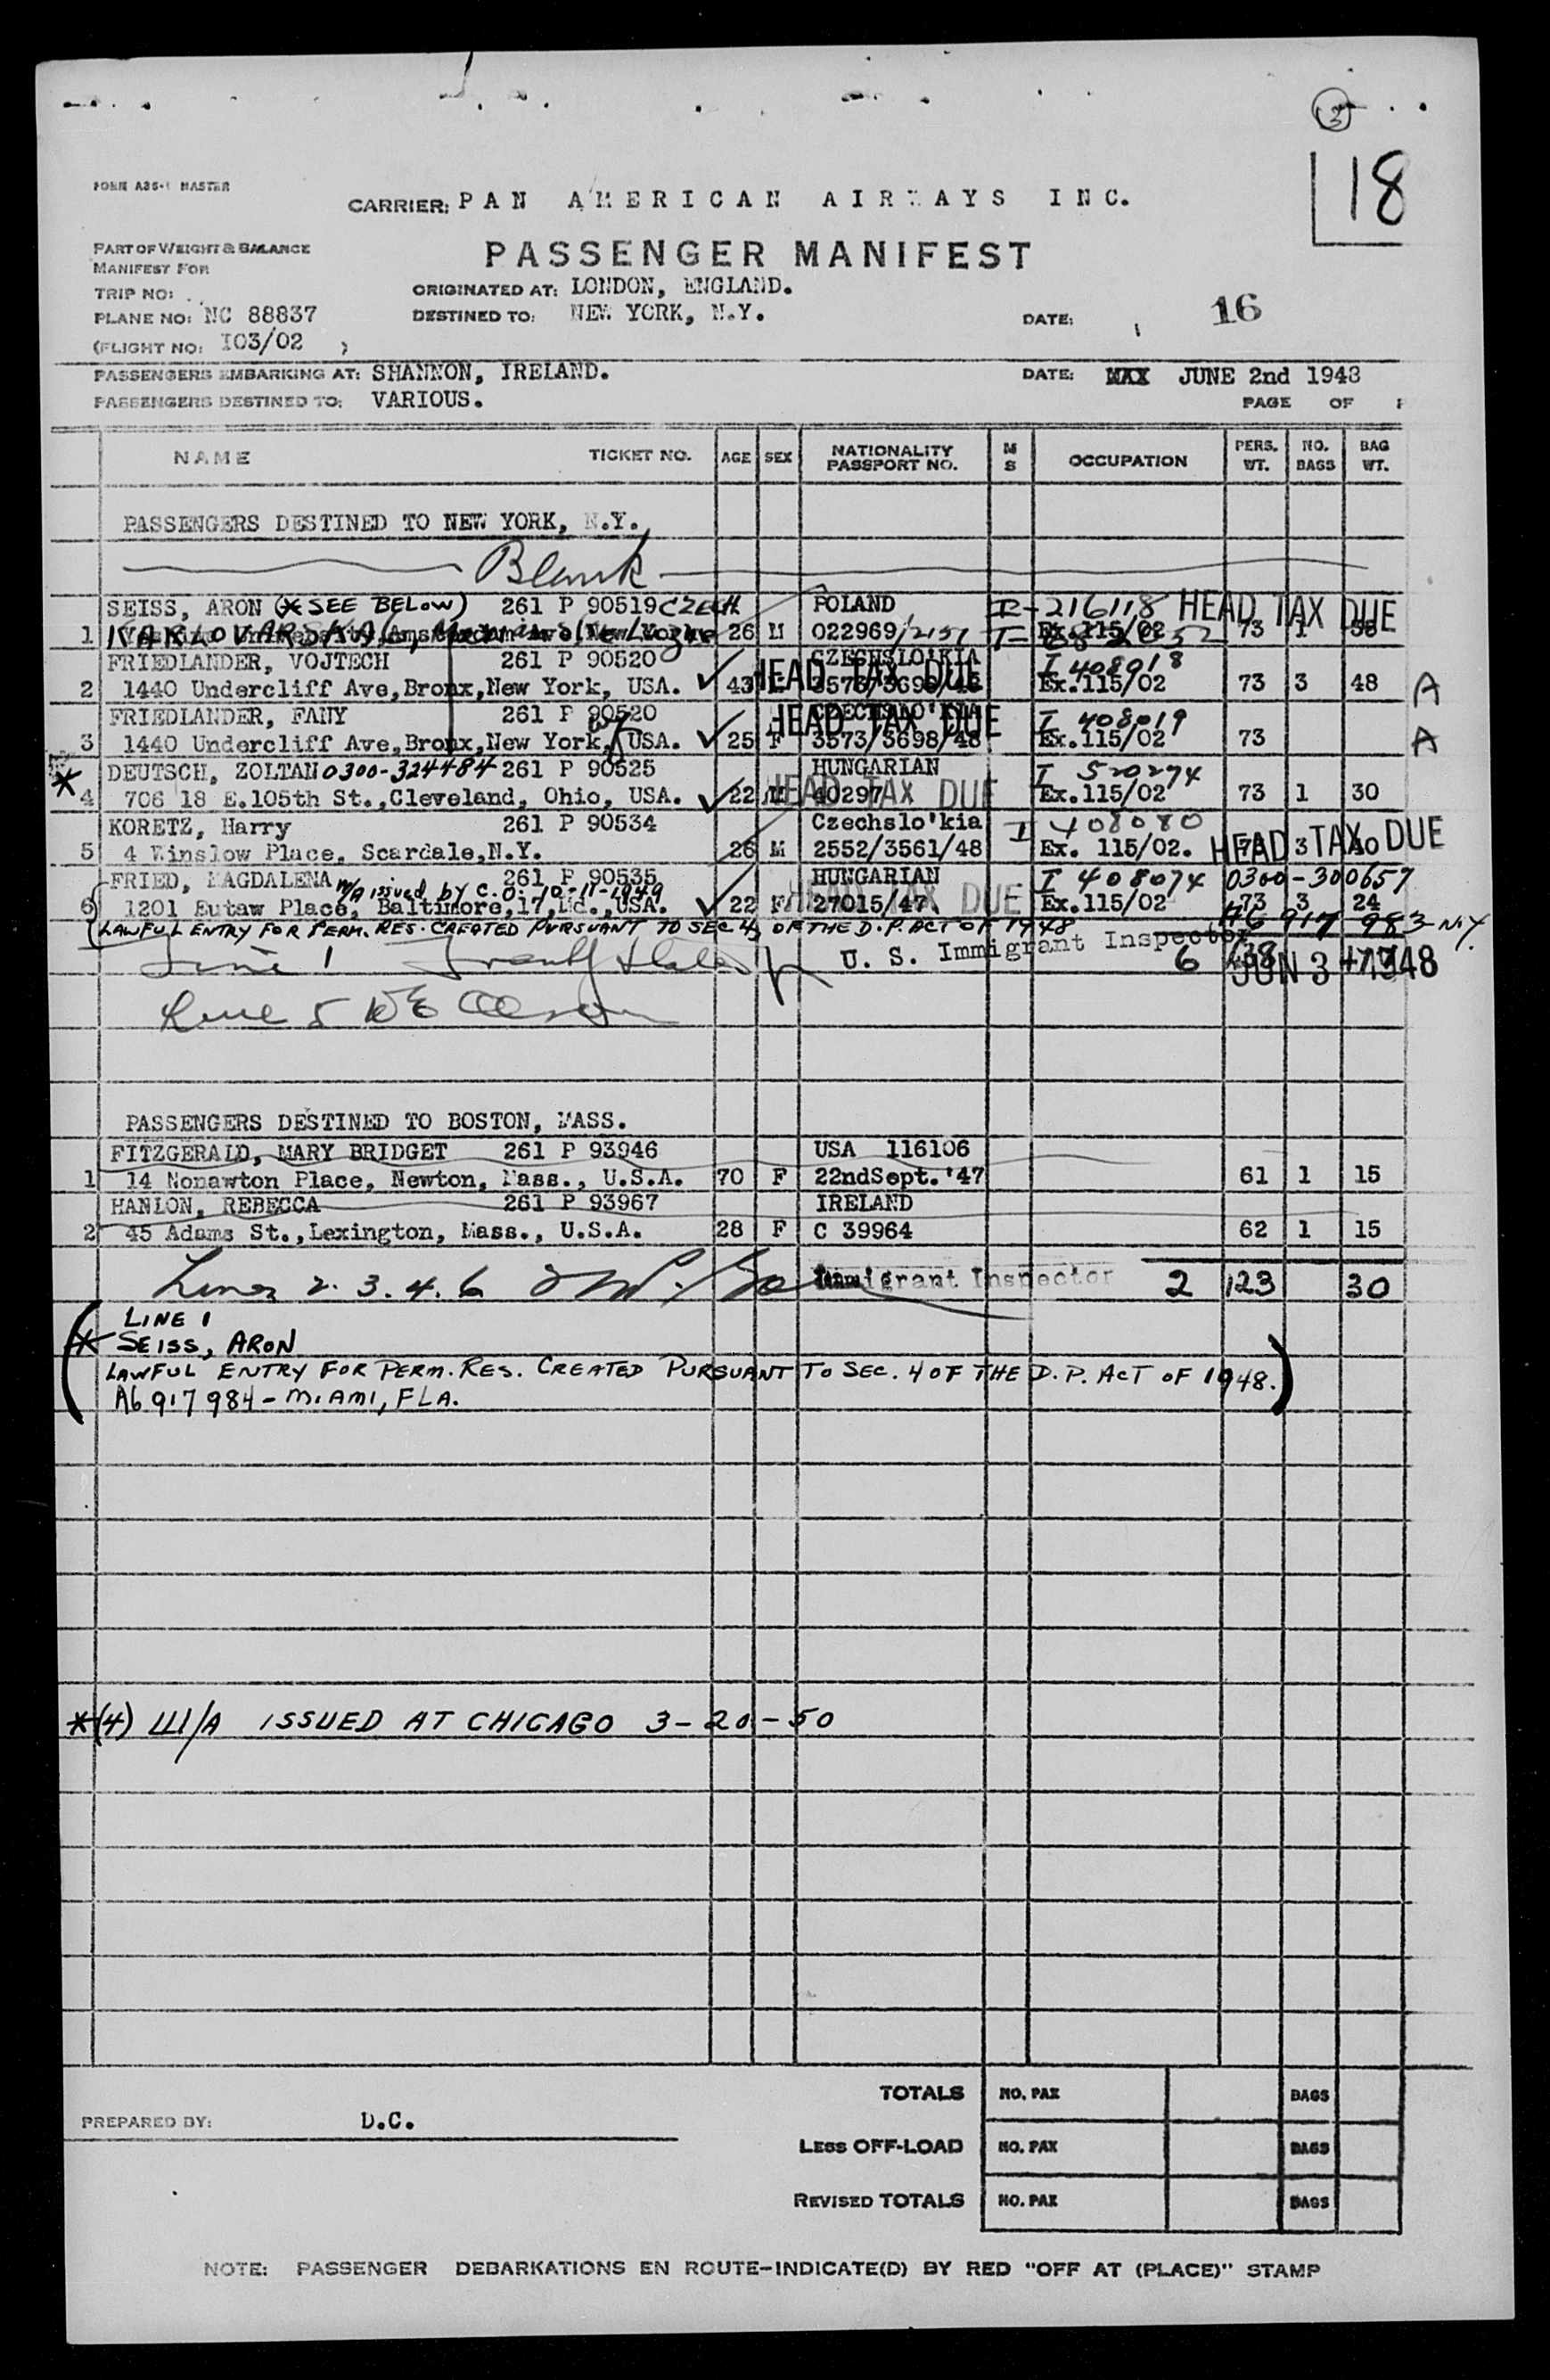 18
FORM A35-1 MASTER
CARRIER: PAN AMERICAN AIRWAYS INC.
PART OF WEIGHT & BALANCE
MANIFEST FOR
PASSENGER MANIFEST
TRIP NO:
ORIGINATED AT: LONDON, ENGLAND.
PLANE NO: NC 88837
DESTINED TO: NEW YORK, N.Y.
DATE: 16
(FLIGHT NO: I03/02 )
PASSENGERS EMBARKING AT: SHANNON, IRELAND.
DATE: MAX JUNE 2nd 1948
PASSENGERS DESTINED TO: VARIOUS.
PAGE OF
NAME TICKET NO. AGE SEX NATIONALITY PASSPORT NO. M S OCCUPATION PERS. WT. NO. BAGS BAG WT.
PASSENGERS DESTINED TO NEW YORK, N.Y.
Blank
SEISS, ARON (* SEE BELOW) 261 P 90519 CZECH. POLAND 216118 HEAD TAX DUE
1 26 M 022969/2151 Ex.115/02 73 1
FRIEDLANDER, VOJTECH 261 P 90520 CZECHSLO'KIA I 408018
2 1440 Undercliff Ave,Bronx,New York, USA. 43 HEAD TAX DUE 3573/3698/48 Ex.115/02 73 3 48 A
FRIEDLANDER, FANY 261 P 90520 CZECHSLO'KIA I 408019
3 1440 Undercliff Ave,Bronx,New York, USA. 25 F HEAD TAX DUE 3573/3698/48 Ex.115/02 73 A
DEUTSCH, ZOLTAN 0300-324484 261 P 90525 HUNGARIAN I 520274
* 4 706 18 E.105th St.,Cleveland, Ohio, USA. 22 M 40297 HEAD TAX DUE Ex.115/02 73 1 30
KORETZ, Harry 261 P 90534 Czechslo'kia I 408080
5 4 Winslow Place, Scardale,N.Y. 26 M 2552/3561/48 Ex. 115/02. HEAD TAX DUE 3
FRIED, MAGDALENA 261 P 90535 HUNGARIAN I 408074 0300-300657
W/A issued by C.O. 10-11-1949
6 1201 Eutaw Place, Baltimore,17,Md.,USA. 22 F 27015/47. HEAD TAX DUE Ex.115/02 73 3 24
(LAWFUL ENTRY FOR PERM. RES. CREATED PURSUANT TO SEC 4 OF THE D.P. ACT OF 1948 A6 917 983 - N.Y.
Line 1 U. S. Immigrant Inspector 6 JUN 3 - 1948
Line 5
PASSENGERS DESTINED TO BOSTON, MASS.
FITZGERALD, MARY BRIDGET 261 P 93946 USA 116106
1 14 Nonawton Place, Newton, Mass., U.S.A. 70 F 22ndSept.'47 61 1 15
HANLON, REBECCA 261 P 93967 IRELAND
2 45 Adams St.,Lexington, Mass., U.S.A. 28 F C 39964 62 1 15
Lines 2. 3. 4. 6 Immigrant Inspector 2 123 30
LINE 1
* SEISS, ARON
LAWFUL ENTRY FOR PERM. RES. CREATED PURSUANT TO SEC. 4 OF THE D.P. ACT OF 1948.)
A6 917 984 - MIAMI, FLA.
*(4) W/A ISSUED AT CHICAGO 3-20-50
TOTALS NO. PAX BAGS
PREPARED BY: D.C.
LESS OFF-LOAD NO. PAX BAGS
REVISED TOTALS NO. PAX BAGS
NOTE: PASSENGER DEBARKATIONS EN ROUTE-INDICATE(D) BY RED "OFF AT (PLACE)" STAMP